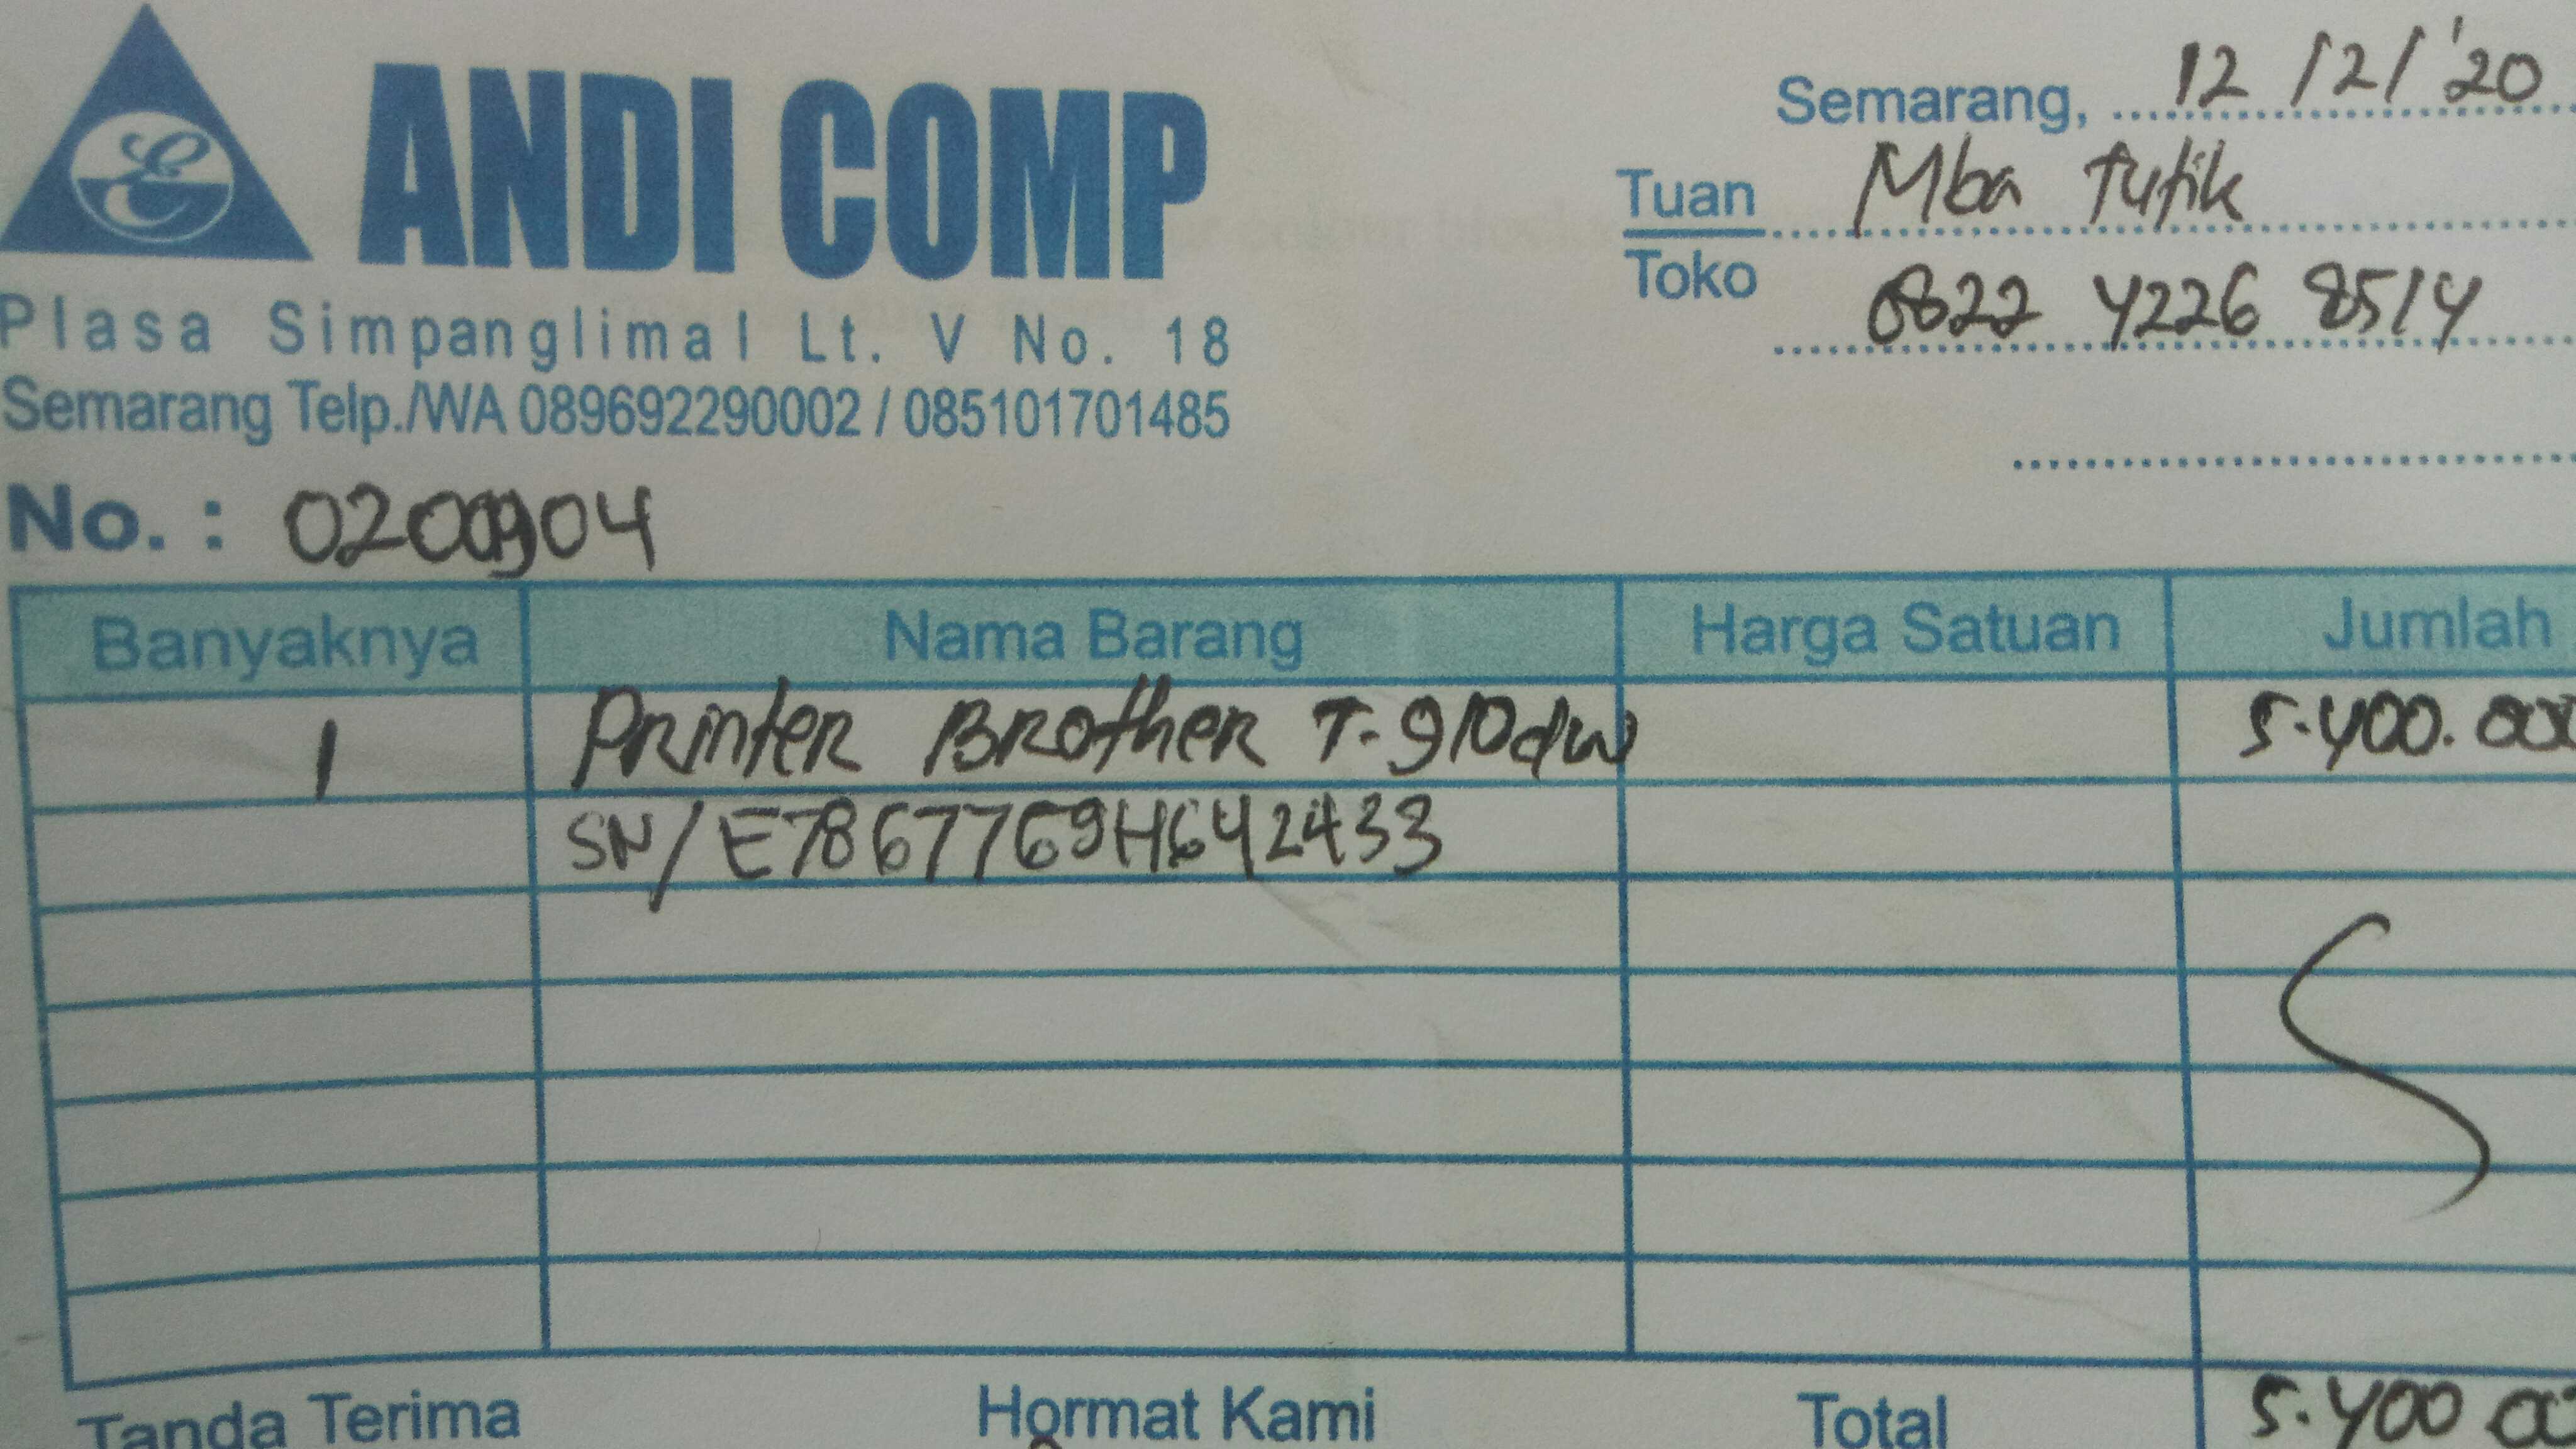 ANDI COMP
Plasa Simpanglimal Lt. V No. 18
Semarang Telp./WA 089692290002 / 085101701485
Semarang, 12/2/'20
Tuan Mba Tutik
Toko 0822 4226 8514
No. :
Banyaknya Nama Barang Harga Satuan Jumlah
1 Printer Brother T-910dw 5.400.000
SN/E7867769H642433
Tanda Terima Hormat Kami Total 5.400